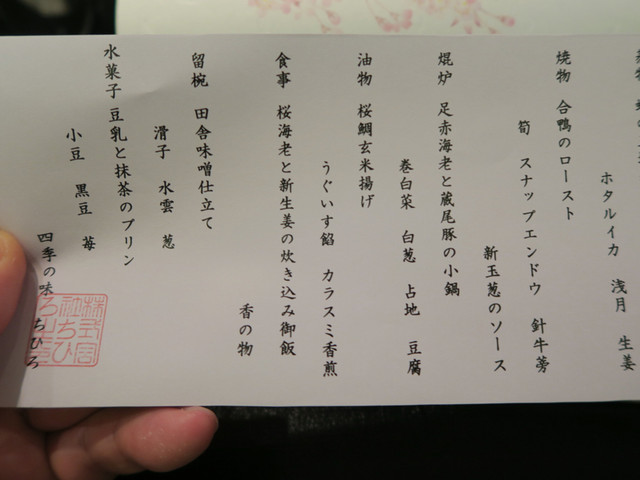 ホタルイカ 浅月 生姜
焼物 合鴨のロースト
筍 スナップエンドウ 針牛蒡
新玉葱のソース
焜炉 足赤海老と蔵尾豚の小鍋
巻白菜 白葱 占地 豆腐
油物 桜鯛玄米揚げ
うぐいす餡 カラスミ香煎
食事 桜海老と新生姜の炊き込み御飯
香の物
留椀 田舎味噌仕立て
滑子 水雲 葱
水菓子 豆乳と抹茶のプリン
小豆 黒豆 苺
四季の味 ちひろ
株式会
社ちひ